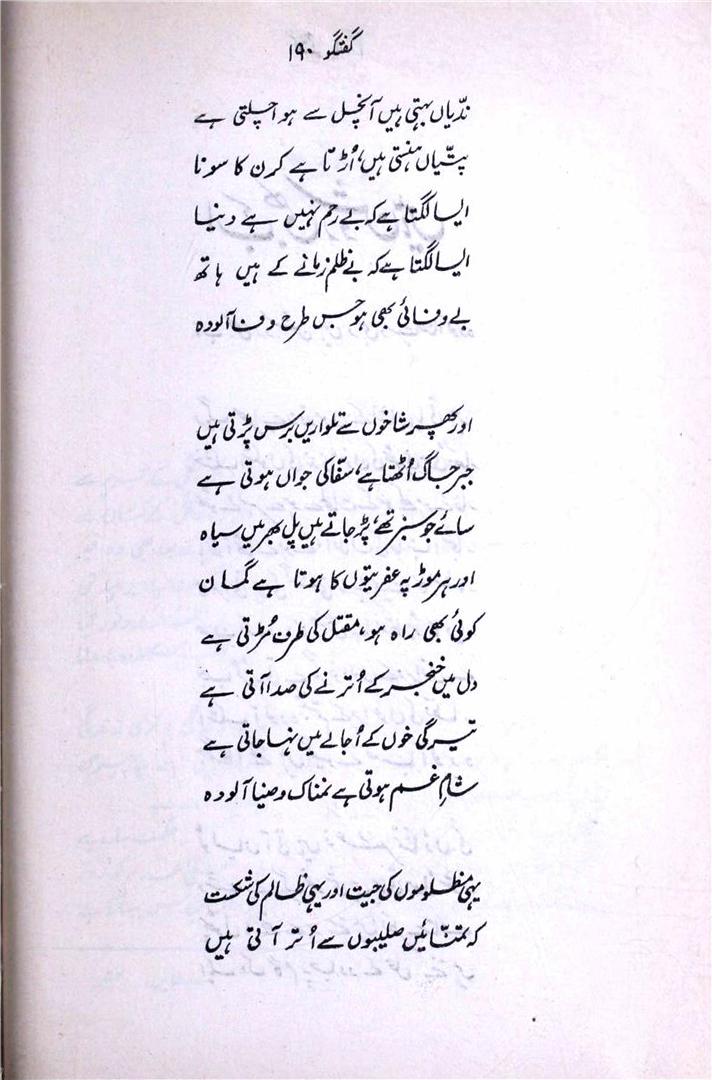 گفتگو ۱۹۰
ندّیاں بہتی ہیں آنچل سے ہوا چلتی ہے
پتیّاں ہنستی ہیں، اُڑتا ہے کرن کا سونا
ایسا لگتا ہے کہ بے رحم نہیں ہے دنیا
ایسا لگتا ہے کہ بے ظلم زمانے کے ہیں ہاتھ
بے وفائی بھی ہو جس طرح وفا آلودہ
اور پھر شاخوں سے تلواریں برس پڑتی ہیں
جبر جاگ اُٹھتا ہے، سفّاکی جواں ہوتی ہے
سائے جو سبز تھے، پڑ جاتے ہیں پل بھر میں سیاہ
اور ہر موڑ پہ عفریتوں کا ہوتا ہے گماں
کوئی بھی راہ ہو، مقتل کی طرف مُڑتی ہے
دل میں خنجر کے اُترنے کی صدا آتی ہے
تیرگی خوں کے اُجالے میں نہا جاتی ہے
شامِ غم ہوتی ہے نمناک و ضیا آلودہ
یہی مظلوموں کی جیت اور یہی ظالم کی شکست
کہ تمنّائیں صلیبوں سے اُتر آتی ہیں